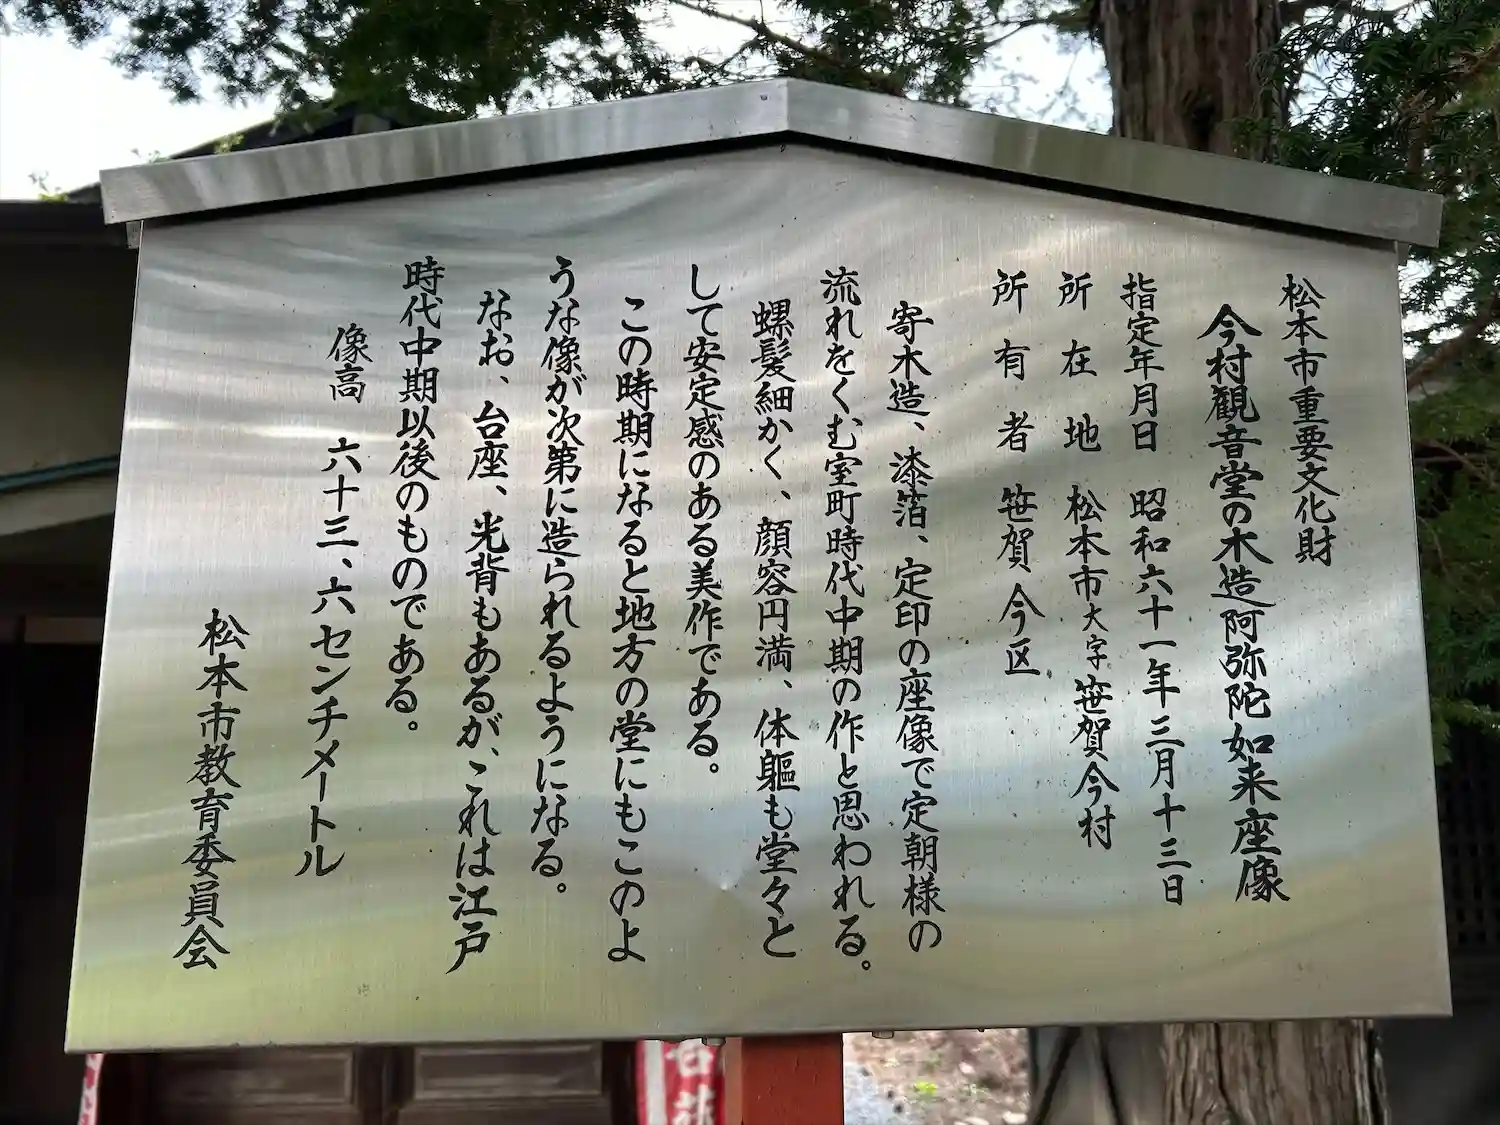 松本市重要文化財
今村観音堂の木造阿弥陀如来座像
指定年月日　昭和六十一年三月十三日
所在地　松本市大字笹賀今村
所有者　笹賀今区
寄木造、漆箔、定印の座像で定朝様の
流れをくむ室町時代中期の作と思われる。
螺髪細かく、顔容円満、体軀も堂々と
して安定感のある美作である。
この時期になると地方の堂にもこのよ
うな像が次第に造られるようになる。
なお、台座、光背もあるが、これは江戸
時代中期以後のものである。
像高　六十三、六センチメートル
松本市教育委員会